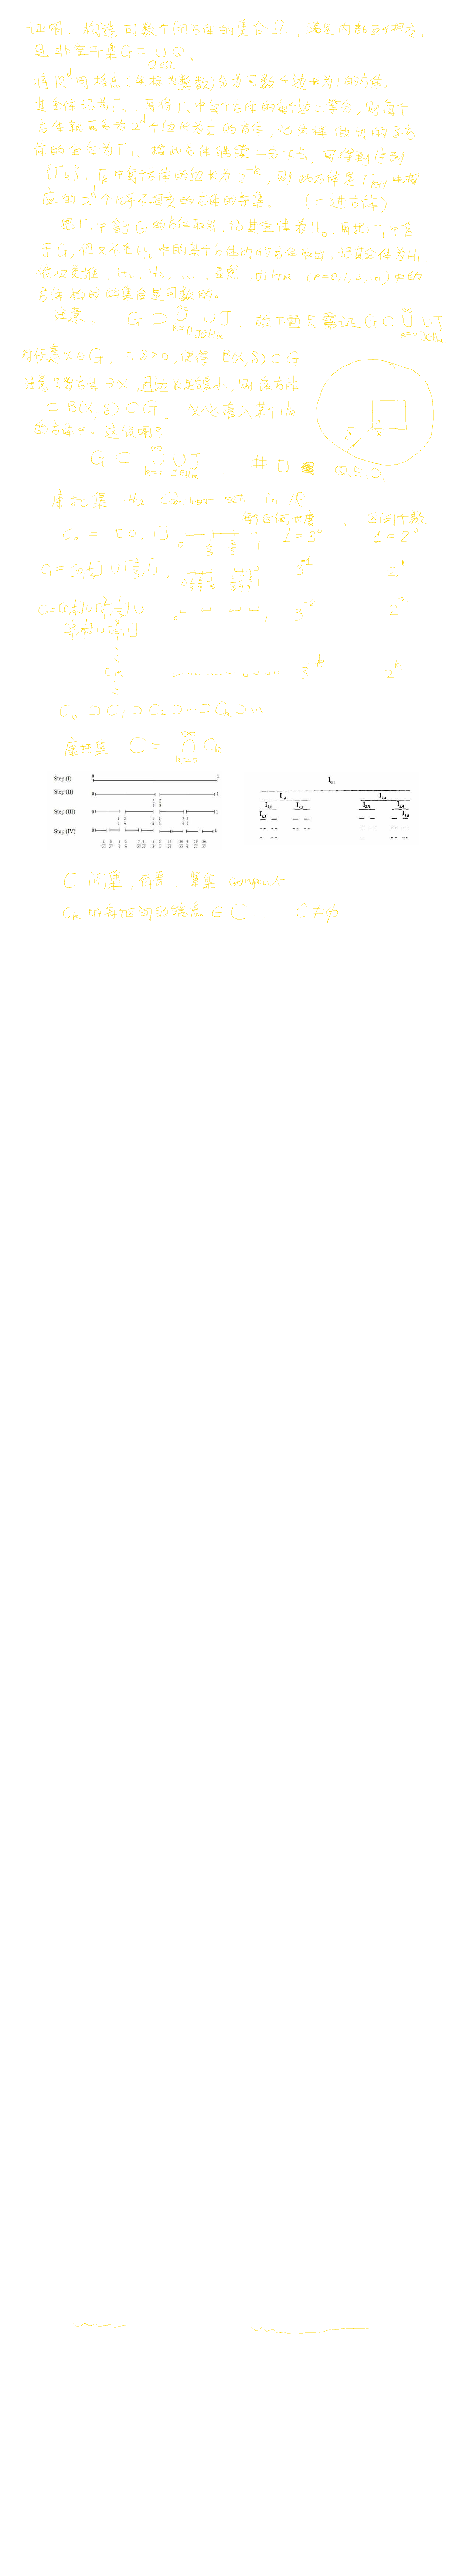 证明：构造可数个闭方体的集合Ω，满足内部互不相交，
且非空开集G = ∪ Q.
Q∈Ω
将ℝ^d用格点(坐标为整数)分为可数个边长为1的方体，
其全体记为Γ₀. 再将Γ₀中每个方体的每个边二等分，则每个
方体就可分为2^d个边长为1/2的方体，记这样做出的子方
体的全体为Γ₁. 按此方法继续二分下去，可得到序列
{Γ_k}，Γ_k中每个方体的边长为2^{-k}，则此方体是Γ_{k+1}中相
应的2^d个互不相交的方体的并集. (二进方体)
把Γ₀中含于G的方体取出，记其全体为H₀. 再把Γ₁中含
于G，但又不在H₀中的某个方体内的方体取出，记其全体为H₁
依次类推，H₂, H₃, .... 显然，由H_k (k=0,1,2,...)中的
方体构成的集合是可数的.
注意. G ⊃ ∪_{k=0}^∞ ∪_{J∈H_k} J. 故下面只需证 G ⊂ ∪_{k=0}^∞ ∪_{J∈H_k} J
对任意x∈G, ∃δ>0, 使得 B(x,δ) ⊂ G
注意只要方体∋x, 且边长足够小，则该方体
⊂ B(x,δ) ⊂ G. x必落入某个H_k
的方体中. 这证明了
δ
G ⊂ ∪_{k=0}^∞ ∪_{J∈H_k} J # □ Q.E.D.
康托集 the Cantor set in ℝ
每个区间长度. 区间个数
C₀ = [0,1] 0 1/3 2/3 1 1=3⁰ 1=2⁰
C₁=[0,1/3]∪[2/3,1]. 0 1/9 2/9 1/3 2/3 7/9 8/9 1 3^{-1} 2^1
C₂=[0,1/9]∪[2/9,1/3]∪ 0 1 3^{-2} 2^2
[2/3,7/9]∪[8/9,1]
⋮
C_k 3^{-k} 2^k
⋮
C₀ ⊃ C₁ ⊃ C₂ ⊃ ... ⊃ C_k ⊃ ...
康托集 C = ∩_{k=0}^∞ C_k
Step (I) 0 1
Step (II) 0 1/3 2/3 1
Step (III) 0 1/9 2/9 1/3 2/3 7/9 8/9 1
Step (IV) 0 1/27 2/27 1/9 2/9 7/27 8/27 1/3 2/3 19/27 20/27 7/9 8/9 25/27 26/27 1
I₀,₁
I₁,₁ I₁,₂
I₂,₁ I₂,₂ I₂,₃ I₂,₄
I₃,₁ I₃,₈
C 闭集，有界. 紧集 compact
C_k 的每区间的端点 ∈ C. C≠∅